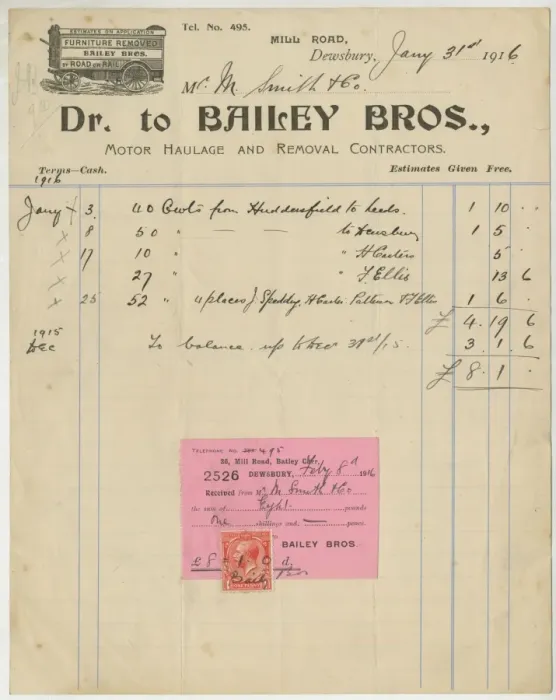 ESTIMATES ON APPLICATION
FURNITURE REMOVED
BAILEY BROS.
BY ROAD OR RAIL
Tel. No. 495.
MILL ROAD,
Dewsbury, Jany 31st 1916
Mr. M. Smith & Co.
Dr. to BAILEY BROS.,
MOTOR HAULAGE AND REMOVAL CONTRACTORS.
Terms—Cash. Estimates Given Free.
1916
Jany 3. 40 Cwts from Huddersfield to Leeds. 1 10 . .
8 50 " — — to Dewsbury 1 5 .
17 10 " " H Carters 5 .
27 " " F. Ellis 13 6
25 52 " 4 places J. Speddy, H Carter F Ellis 1 6 .
£ 4. 19 6
1915
Dec To balance up to Dec 31st/15. 3. 1. 6
£ 8. 1 .
TELEPHONE NO. 495
38, Mill Road, Batley Carr.
2526 DEWSBURY, Feby 8th 1916
Received from Mr. M Smith & Co
the sum of Eight pounds
One shillings and — pence.
BAILEY BROS.
£ 8 : 1 : 0 d.
Bailey Bros